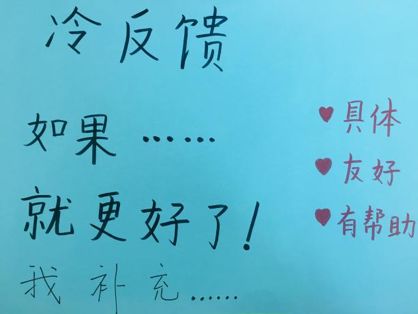 冷反馈
如果……
就更好了!
我补充……
具体
友好
有帮助